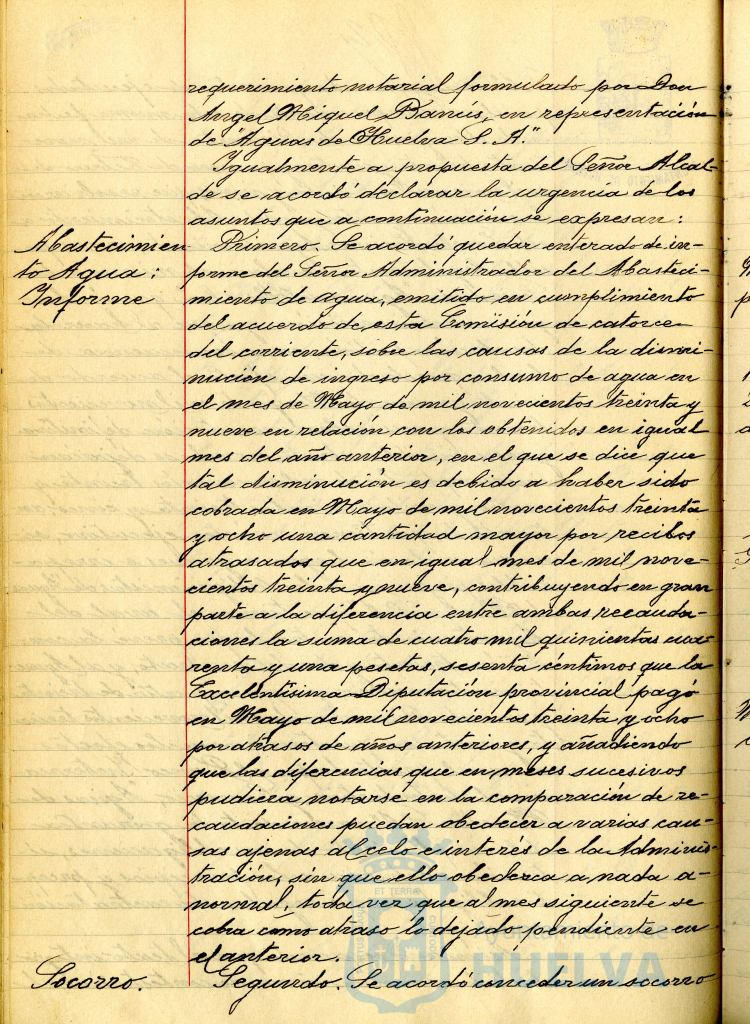 requerimiento notarial formulado por Don
Angel Miguel Banús, en representación
de "Aguas de Huelva S. A."
Igualmente a propuesta del Señor Alcal-
de se acordó declarar la urgencia de los
asuntos que a continuación se expresan:
Abastecimien
to Agua:
Informe
Primero. Se acordó quedar enterado de in-
forme del Señor Administrador del Abasteci-
miento de agua, emitido en cumplimiento
del acuerdo de esta Comisión de catorce
del corriente, sobre las causas de la dismi-
nución de ingreso por consumo de agua en
el mes de Mayo de mil novecientos treinta y
nueve en relación con los obtenidos en igual
mes del año anterior, en el que se dice que
tal disminución es debido a haber sido
cobrada en Mayo de mil novecientos treinta
y ocho una cantidad mayor por recibos
atrasados que en igual mes de mil nove-
cientos treinta y nueve, contribuyendo en gran
parte a la diferencia entre ambas recauda-
ciones la suma de cuatro mil quinientas cua-
renta y una pesetas, sesenta céntimos que la
Excelentísima Diputación provincial pagó
en Mayo de mil novecientos treinta y ocho
por atrasos de años anteriores, y añadiendo
que las diferencias que en meses sucesivos
pudiera notarse en la comparación de re-
caudaciones puedan obedecer a varias cau-
sas ajenas al celo e interés de la Adminis-
tración, sin que ello obedezca a nada a-
normal, toda vez que al mes siguiente se
cobra como atraso lo dejado pendiente en
el anterior.
Socorro.
Segundo. Se acordó conceder un socorro
ET TERRAE
HUELVA